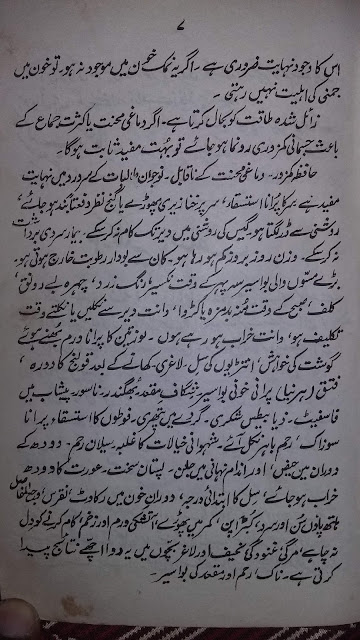 ۷
اس کا وجود نہایت ضروری ہے ۔ اگر یہ نمک خون میں موجود نہ ہو۔ تو خون میں
جمنے کی اہلیت نہیں رہتی ۔
زائل شدہ طاقت کو بحال کرتا ہے۔ اگر دماغی محنت یا کثرت جماع کے
باعث جسمانی کمزوری رونما ہو جائے تو بہت مفید ثابت ہوگا ۔
حافظہ کمزور ۔ دماغی محنت کے ناقابل ۔ نوجوان طالبات کے سردرد میں نہایت
مفید ہے سر کا پرانا استسقاء، سر پر خنازیری پھوڑے یا گنج نظر دفعتاً بند ہو جائے،
روشنی سے ڈر لگتا ہو۔ گیس کی روشنی میں دیر تک کام نہ کر سکے ۔ بیمار سردی برداشت
نہ کر سکے ۔ وزن روز بروز کم ہو رہا ہو۔ کان سے بودار رطوبت خارج ہوتی ہو۔
بڑے مسوں والی بواسیر سہ پہر کے وقت نکسیر، رنگ زرد، چہرہ بے رونق،
کلف، صبح کے وقت منہ بدمزہ یا کڑوا، دانت دیر سے نکلیں یا نکلتے وقت
تکلیف ہو، دانت خراب ہو رہے ہوں ۔ لوزتین کا پرانا ورم بھنے ہوئے
گوشت کی خواہش، انتڑیوں کی سل ۔ لاغری کھانے کے بعد قولنج کا دورہ،
فتق (ہرنیا) پرانی خونی بواسیر، شگاف مقعد، بھگندر، ناسور پیشاب میں
فاسفیٹ ۔ ذیابیطس شکری ۔ گردے میں پتھری ۔ فوطوں کا استسقاء پرانا
سوزاک، رحم باہر نکل آئے ۔ شہوانی خیالات کا غلبہ سیلان رحم ۔ دودھ کے
دوران میں حیض، اور اندام نہانی میں جلن ۔ پستان سخت ۔ عورت کا دودھ
خراب ہو جائے، سل کا ابتدائی درجہ، دوران خون میں رکاوٹ، نقرس، وجع المفاصل
ہاتھ پاؤں سن اور سرد، کبڑا پن، کمر میں پھوڑے، آتشکی ورم اور زخم، کام کرنے کو دل
نہ چاہے، مرگی غنودگی نحیف اور لاغر بچوں میں یہ دوا اچھے نتائج پیدا
کرتی ہے ۔ ناک، رحم اور مقعد کی بواسیر ۔